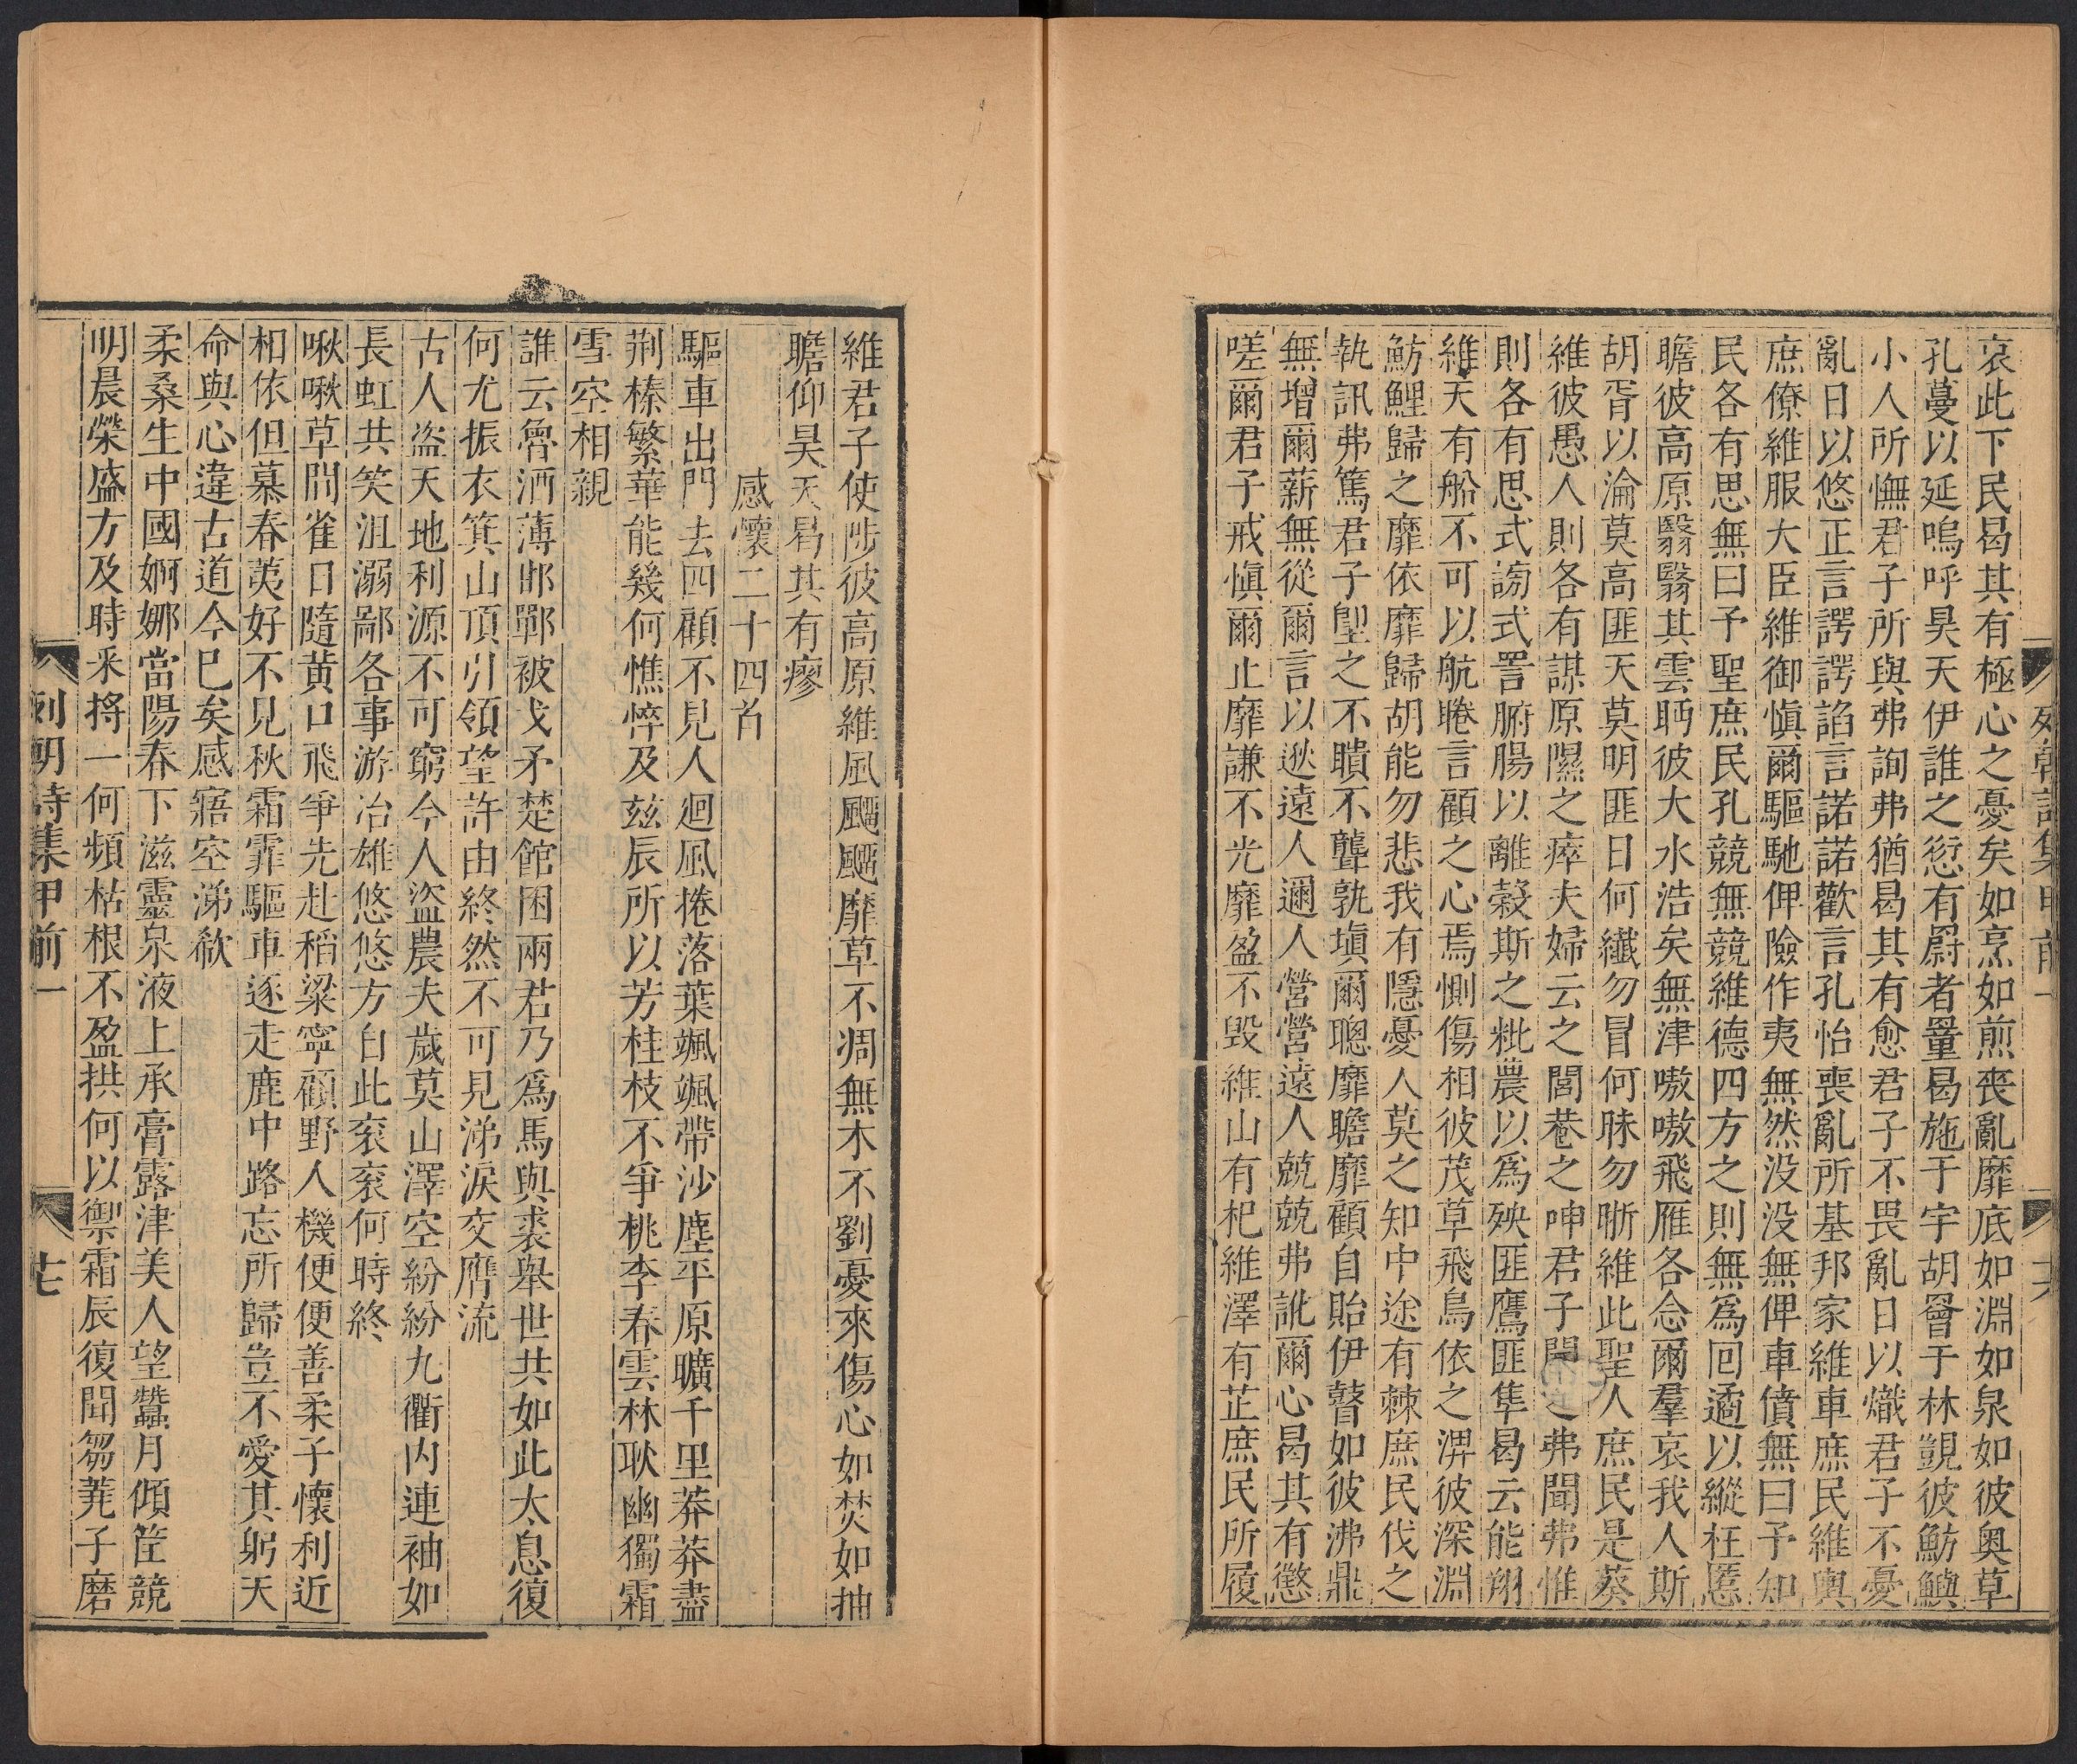 列朝詩集甲前一 十六
哀此下民曷其有極心之憂矣如烹如煎喪亂靡底如淵如泉如彼奥草
孔蔓以延嗚呼昊天伊誰之愆有罻者罿曷施于宇胡罾于林覬彼魴鱮
小人所憮君子所與弗詢弗猶曷其有愈君子不畏亂日以熾君子不憂
亂日以悠正言諤諤諂言諾諾歡言孔怡喪亂所基邦家維車庶民維輿
庶僚維服大臣維御慎爾驅馳俾險作夷無然没没無俾車僨無曰予知
民各有思無曰予聖庶民孔競無競維德四方之則無爲回遹以縱枉慝
瞻彼高原翳翳其雲眄彼大水浩矣無津嗷嗷飛雁各念爾羣哀我人斯
胡胥以淪莫高匪天莫明匪日何纖勿冒何昧勿晰維此聖人庶民是葵
維彼愚人則各有謀原隰之瘁夫婦云之閭巷之呻君子聞之弗聞弗惟
則各有思式謗式詈腑腸以離穀斯之秕農以爲殃匪鷹匪隼曷云能翔
維天有船不可以航睠言顧之心焉惻傷相彼茂草飛鳥依之淠彼深淵
魴鯉歸之靡依靡歸胡能勿悲我有隱憂人莫之知中途有棘庶民伐之
執訊弗篤君子堲之不瞶不聾孰塡爾聰靡瞻靡顧自貽伊瞽如彼沸鼎
無增爾薪無從爾言以逖遠人邇人營營遠人兢兢弗訛爾心曷其有懲
嗟爾君子戒慎爾止靡謙不光靡盈不毁維山有杞維澤有芷庶民所履
維君子使陟彼高原維風飂飂靡草不凋無木不劉憂來傷心如焚如抽
瞻仰昊天曷其有瘳
感懷二十四首
驅車出門去四顧不見人迴風捲落葉颯颯帶沙塵平原曠千里莽莽盡
荆榛繁華能幾何憔悴及玆辰所以芳桂枝不爭桃李春雲林耿幽獨霜
雪空相親
誰云魯酒薄邯鄲被戈矛楚館困兩君乃爲馬與裘舉世共如此太息復
何尤振衣箕山頂引領望許由終然不可見涕淚交膺流
古人盜天地利源不可窮今人盜農夫歲莫山澤空紛紛九衢内連袖如
長虹共笑沮溺鄙各事游冶雄悠悠方自此衮衮何時終
啾啾草間雀日隨黄口飛爭先赴稻粱寧顧野人機便便善柔子懷利近
相依但慕春荑好不見秋霜霏驅車逐走鹿中路忘所歸豈不愛其躬天
命與心違古道今已矣感寤空涕欷
柔桑生中國婀娜當陽春下滋靈泉液上承膏露津美人望蠶月傾筐競
明晨榮盛方及時采捋一何頻枯根不盈拱何以禦霜辰復聞芻蕘子磨
列朝詩集甲前一 十七